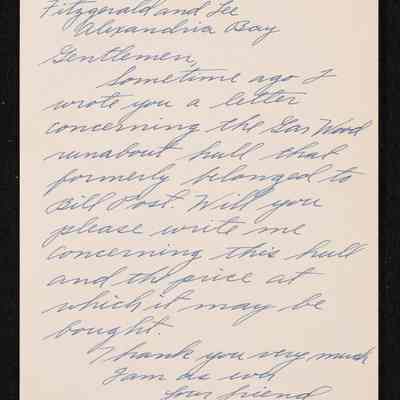 Fitzgerald and Lee
Alexandria Bay
Gentlemen,
Sometime ago I
wrote you a letter
concerning the Gar Wood
runabout hull that
formerly belonged to
Bill Post. Will you
please write me
concerning this hull
and the price at
which it may be
bought.
Thank you very much
I am as ever
Your friend